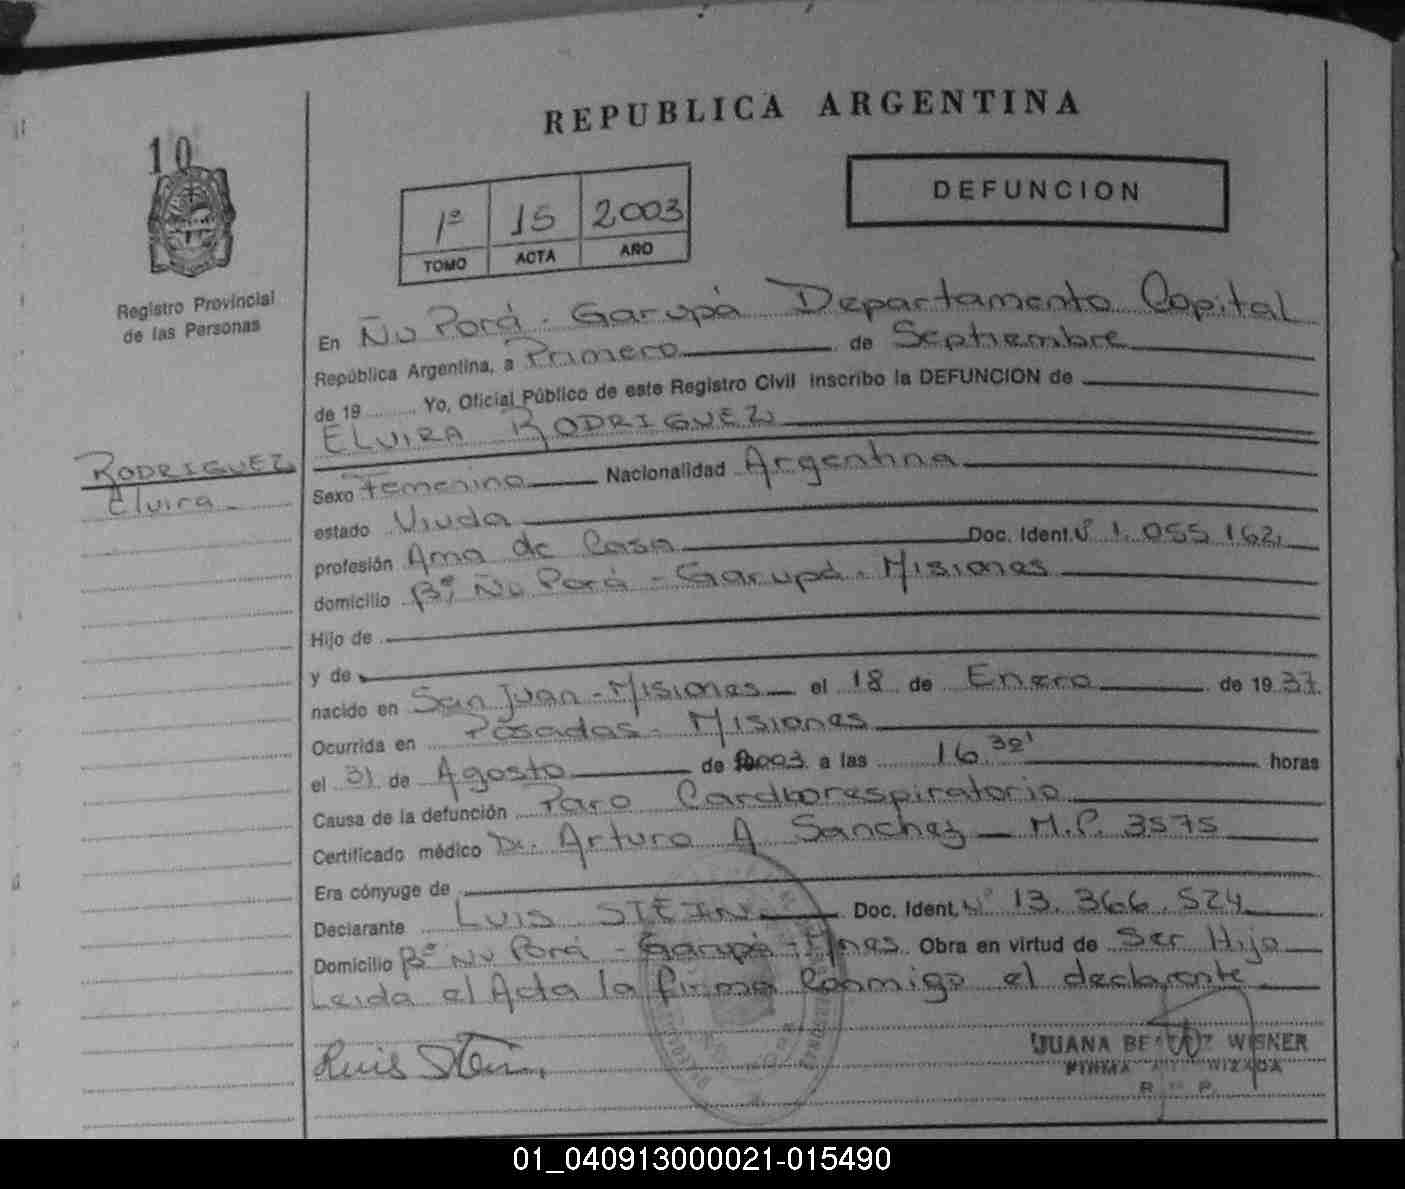 REPUBLICA ARGENTINA
10
DEFUNCION
1º 15 2003
TOMO ACTA AÑO
Registro Provincial
de las Personas
En Ñu Porá - Garupá Departamento Capital
República Argentina, a Primero de Septiembre
de 19 Yo, Oficial Público de este Registro Civil inscribo la DEFUNCION de
ELVIRA RODRIGUEZ
RODRIGUEZ
Elvira
Sexo Femenino Nacionalidad Argentina
estado Viuda
profesión Ama de Casa Doc. Ident. Nº 1.055.162
domicilio Bº Ñu Porá - Garupá - Misiones
Hijo de
y de
nacido en San Juan - Misiones el 18 de Enero de 1937
Ocurrida en Posadas - Misiones
el 31 de Agosto de 2003 a las 16.30' horas
Causa de la defunción Paro Cardiorespiratorio
Certificado médico Dr. Arturo A Sanchez M.P. 3575
Era cónyuge de
Declarante LUIS STEIN Doc. Ident. Nº 13.366.524
Domicilio Bº Ñu Porá - Garupá - Mnes. Obra en virtud de Ser Hijo
Leida el Acta la firma Conmigo el declarante
Luis Stein
JUANA BEATRIZ WISNER
01_040913000021-015490